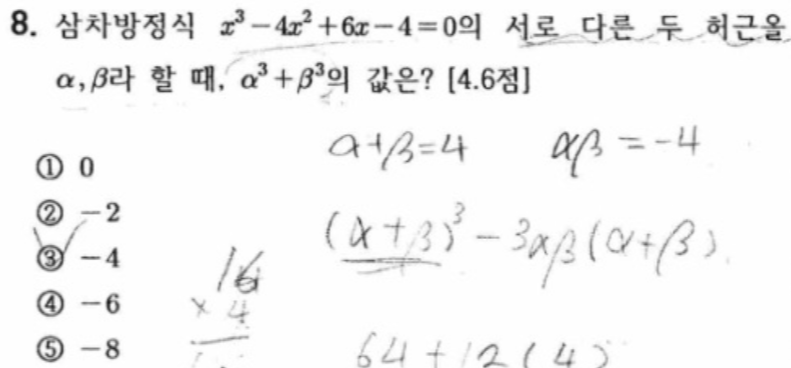 8. 삼차방정식 x³-4x²+6x-4=0의 서로 다른 두 허근을
α, β라 할 때, α³+β³의 값은? [4.6점]
① 0
② -2
③ -4
④ -6
⑤ -8
α+β=4 αβ=-4
(α+β)³-3αβ(α+β)
× 4
64+12(4)